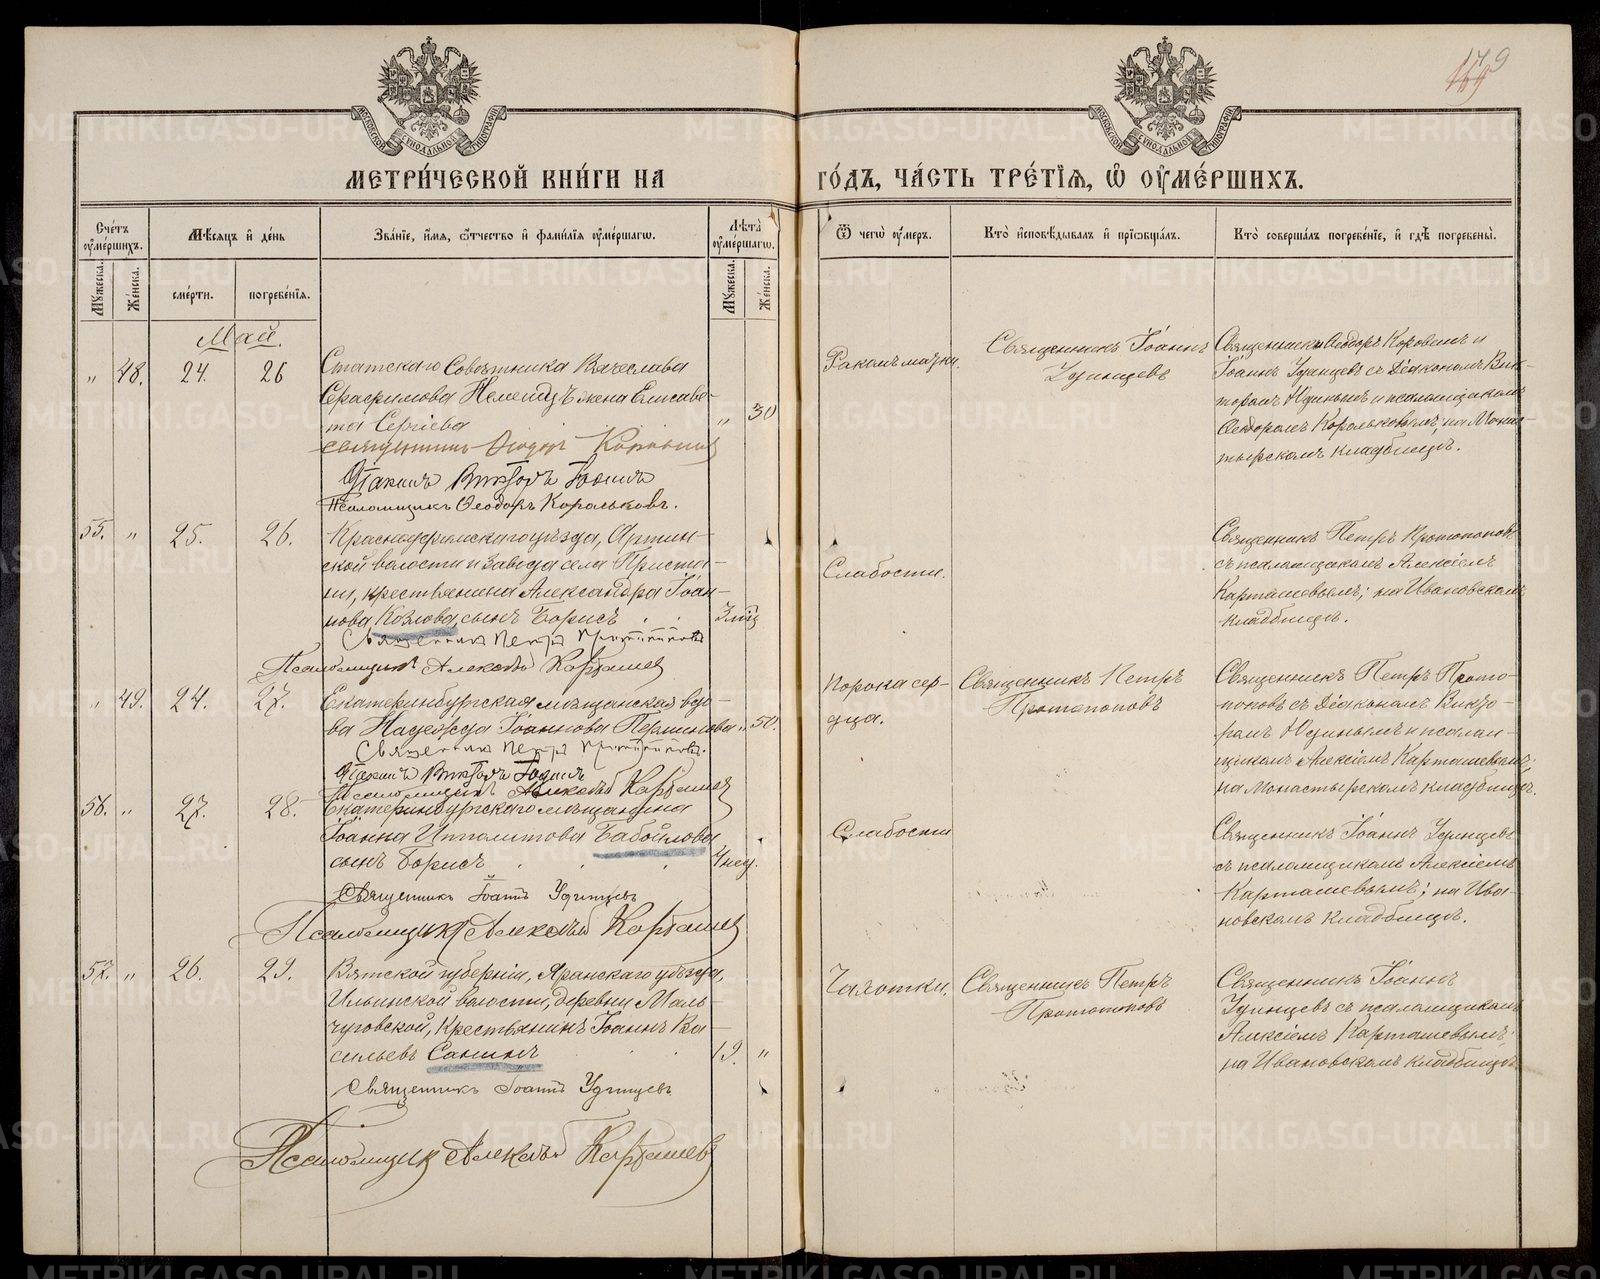 179
169
МОСКОВСКОЙ СѴНОДАЛЬНОЙ ТИПОГРАФІИ
МОСКОВСКОЙ СѴНОДАЛЬНОЙ ТИПОГРАФІИ
МЕТРИ́ЧЕСКОЙ КНИ́ГИ НА ГО́ДЪ, ЧА́СТЬ ТРЕ́ТІѦ, Ѡ ОУМЕ́РШИХЪ.
Сче́тъ оуме́ршихъ.
Мѣсѧцъ и де́нь
Зва́ніе, и́мѧ, ѻ́тчество и фами́лїѧ оуме́ршагѡ.
Лѣта̀ оуме́ршагѡ.
Ѿ чегѡ̀ оу́меръ.
Кто̀ исповѣ́дывалъ и прїѡбща́лъ.
Кто̀ соверша́лъ погребе́нїе, и гдѣ̀ погребены̀.
Мꙋжеска.
Же́нска.
сме́рти.
погребе́нїѧ.
Мꙋжеска.
Же́нска.
Май.
„ 48. 24. 26
Статскаго Совѣтника Вячеслава
Серафимова Немецъ жена Елисаве-
та Сергіева „ 30
Священникъ Ѳеодоръ Коровинъ
Діаконъ Викторъ Юдинъ
Псаломщикъ Ѳеодоръ Корольковъ.
Ракомъ матки.
Священникъ Іоаннъ
Удинцевъ
Священники Ѳеодоръ Коровинъ и
Іоаннъ Удинцевъ съ Діакономъ Вик-
торомъ Юдинымъ и псаломщикомъ
Ѳеодоромъ Корольковымъ; на Монас-
тырскомъ кладбищѣ.
55. „ 25. 26.
Красноуфимскаго уѣзда, Артин-
ской волости и завода села Приста-
ни, крестьянина Александра Іоан-
нова Козлова, сынъ Борисъ 3 мѣс.
Священникъ Петръ Протопоповъ
Псаломщикъ Алексѣй Карташевъ
Слабости.
Священникъ Петръ Протопоповъ
съ псаломщикомъ Алексіемъ
Карташевымъ; на Ивановскомъ
кладбищѣ.
„ 49. 24. 27.
Екатеринбургская мѣщанская вдо-
ва Надежда Іоаннова Перминова „ 50.
Священникъ Петръ Протопоповъ.
Діаконъ Викторъ Юдинъ
Псаломщикъ Алексѣй Карташевъ
Порока сер-
дца.
Священникъ Петръ
Протопоповъ
Священникъ Петръ Прото-
поповъ съ Діакономъ Викто-
ромъ Юдинымъ и псалом-
щикомъ Алексіемъ Карташевымъ;
на Монастырскомъ кладбищѣ.
56. „ 27. 28.
Екатеринбургскаго мѣщанина
Іоанна Ипполитова Бабойлова
сынъ Борисъ 4 нед.
Священникъ Іоаннъ Удинцевъ
Псаломщикъ Алексѣй Карташевъ
Слабости
Священникъ Іоаннъ Удинцевъ
съ псаломщикомъ Алексіемъ
Карташевымъ; на Ива-
новскомъ кладбищѣ.
57. „ 26. 29.
Вятской губерніи, Яранскаго уѣзда,
Ильинской волости, деревни Маль-
чуговской, крестьянинъ Іоаннъ Ва-
сильевъ Санинъ 19. „
Священникъ Іоаннъ Удинцевъ
Псаломщикъ Алексѣй Карташевъ
Чахотки.
Священникъ Петръ
Протопоповъ
Священникъ Іоаннъ
Удинцевъ съ псаломщикомъ
Алексіемъ Карташевымъ;
на Ивановскомъ кладбищѣ.
METRIKI.GASO-URAL.RU